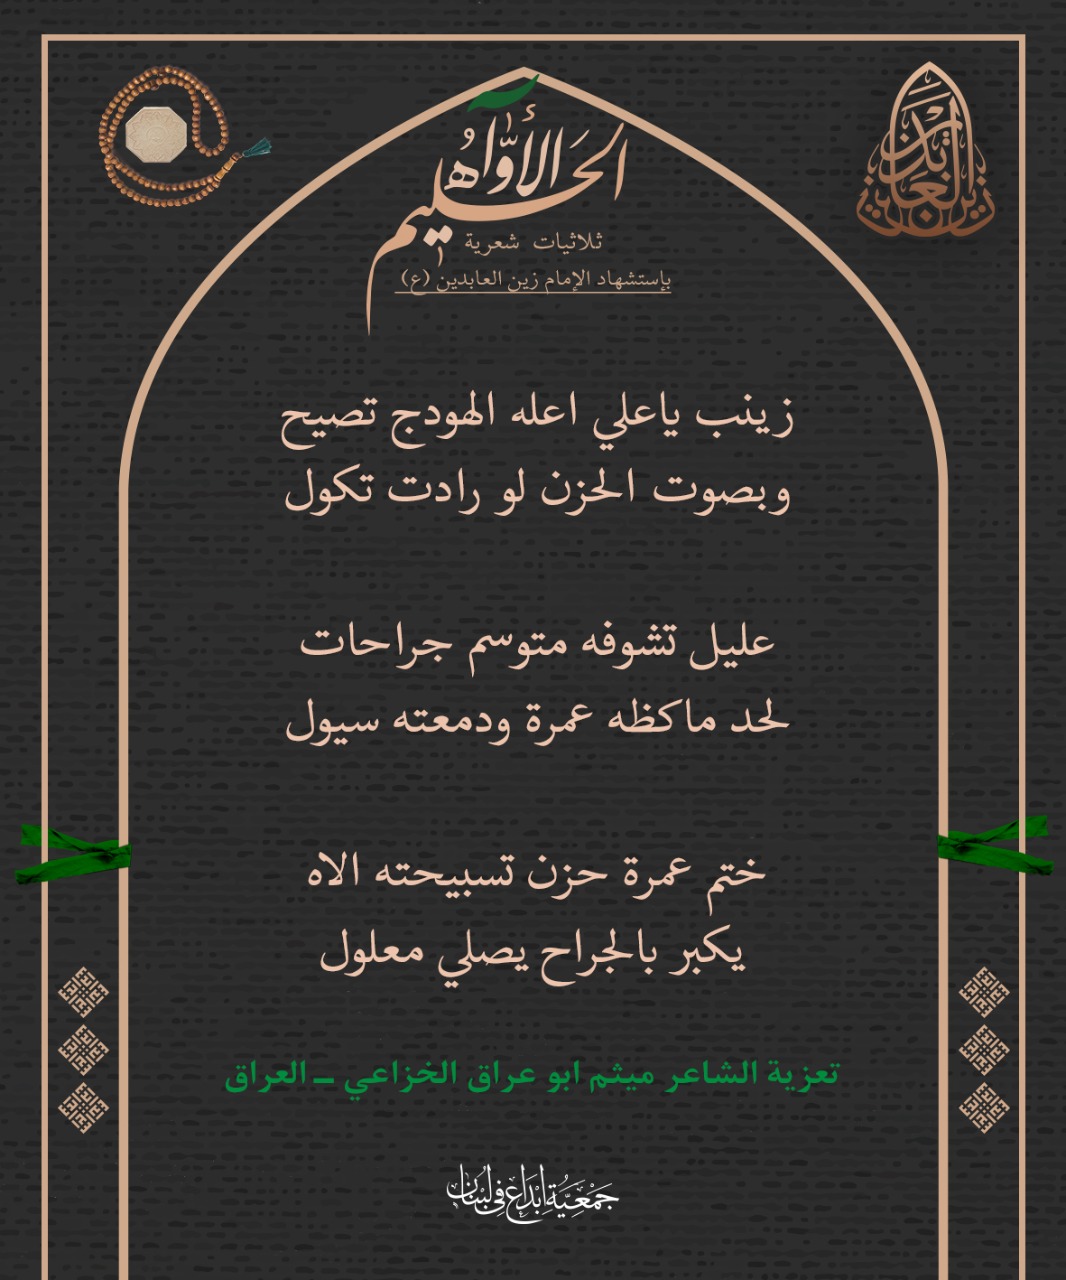 زين العابدين
الأوّاه الحليم
ثلاثيات شعرية
بإستشهاد الإمام زين العابدين (ع)
زينب ياعلي اعله الهودج تصيح
وبصوت الحزن لو رادت تكول
عليل تشوفه متوسم جراحات
لحد ماكظه عمرة ودمعته سيول
ختم عمرة حزن تسبيحته الاه
يكبر بالجراح يصلي معلول
تعزية الشاعر ميثم ابو عراق الخزاعي ـ العراق
جَمْعِيَّةُ إِبْدَاع فِي لُبْنَان